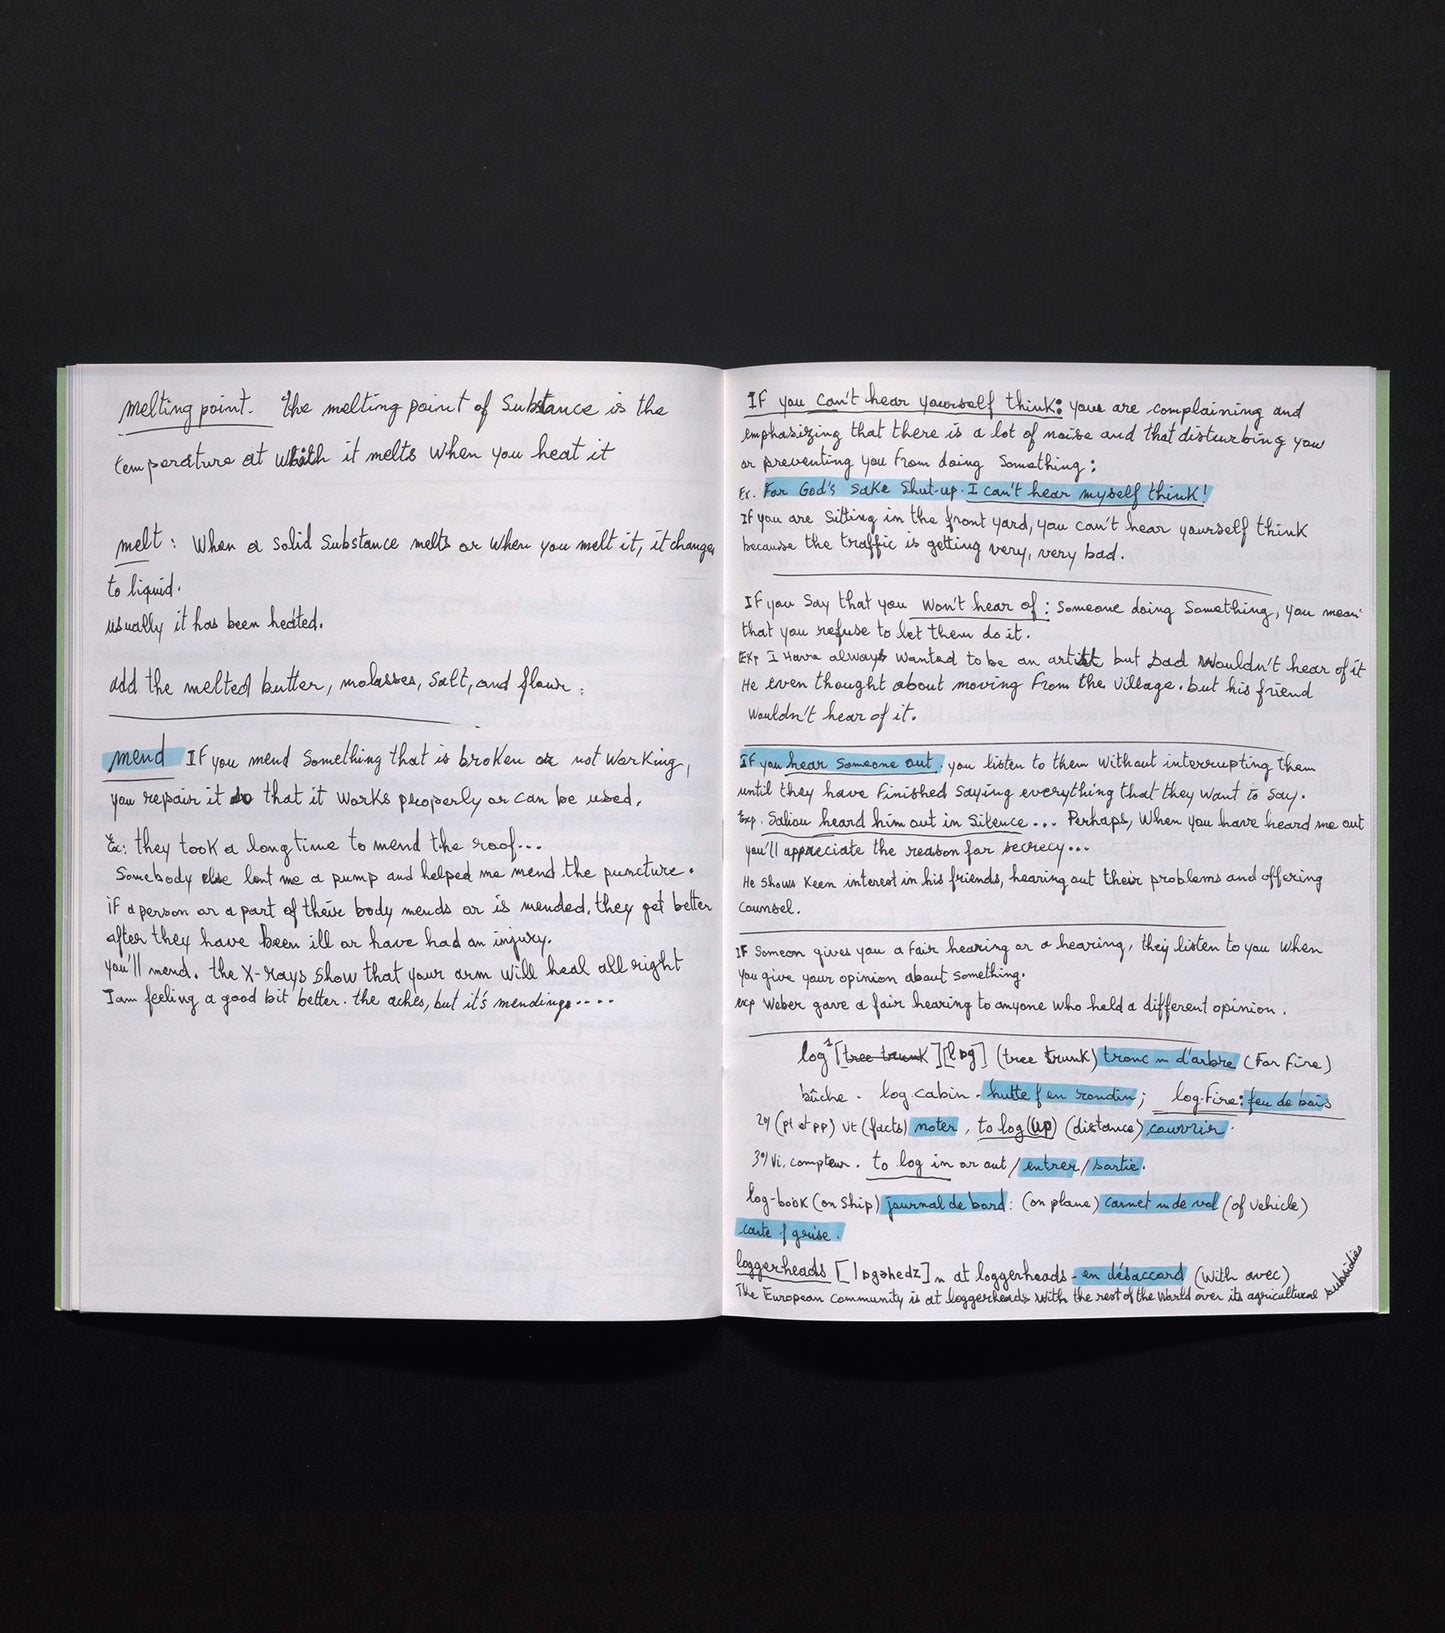 melting point. The melting point of Substance is the
temperature at which it melts when you heat it
melt : When a solid Substance melts or when you melt it, it changes
to liquid.
usually it has been heated.
add the melted butter, molasses, salt, and flour :
mend If you mend Something that is broken or not working,
you repair it so that it works properly or can be used.
Ex: they took a long time to mend the roof...
Somebody else lent me a pump and helped me mend the puncture.
if a person or a part of their body mends or is mended, they get better
after they have been ill or have had an injury.
you'll mend. the X-rays show that your arm will heal all right
I am feeling a good bit better. the aches, but it's mending....
If you can't hear yourself think: you are complaining and
emphasizing that there is a lot of noise and that disturbing you
or preventing you from doing Something :
Ex. For God's Sake Shut-up. I can't hear myself think!
If you are Sitting in the front yard, you can't hear yourself think
because the traffic is getting very, very bad.
If you Say that you won't hear of : Someone doing Something, you mean
that you refuse to let them do it.
Exp I Have always wanted to be an artist but Dad wouldn't hear of it
He even thought about moving From the Village. but his friend
wouldn't hear of it.
If you hear Someone out. you listen to them without interrupting them
until they have Finished Saying everything that they want to Say.
Exp. Saliou heard him out in Silence... Perhaps, When you have heard me out
you'll appreciate the reason for secrecy...
He Shows Keen interest in his friends, hearing out their problems and offering
Counsel.
IF Someon gives you a Fair hearing or a hearing, they listen to you When
you give your opinion about Something.
exp Weber gave a fair hearing to anyone who held a different opinion.
log¹ [tree trunk] [lɒg] (tree trunk) tronc m d'arbre (For Fire)
bûche . log cabin . hutte f en rondin ; log-Fire : feu de bois
2°/ (pt et pp) vt (facts) noter , to log (up) (distance) couvrir.
3°/ vi, compteur . to log in or out / entrer / sortie.
log-book (on Ship) journal de bord : (on plane) carnet m de vol (of vehicle)
carte f grise.
loggerheads [lɒgəhedz] n at loggerheads - en désaccord (with avec)
The European Community is at loggerheads with the rest of the World over its agricultural subsidies